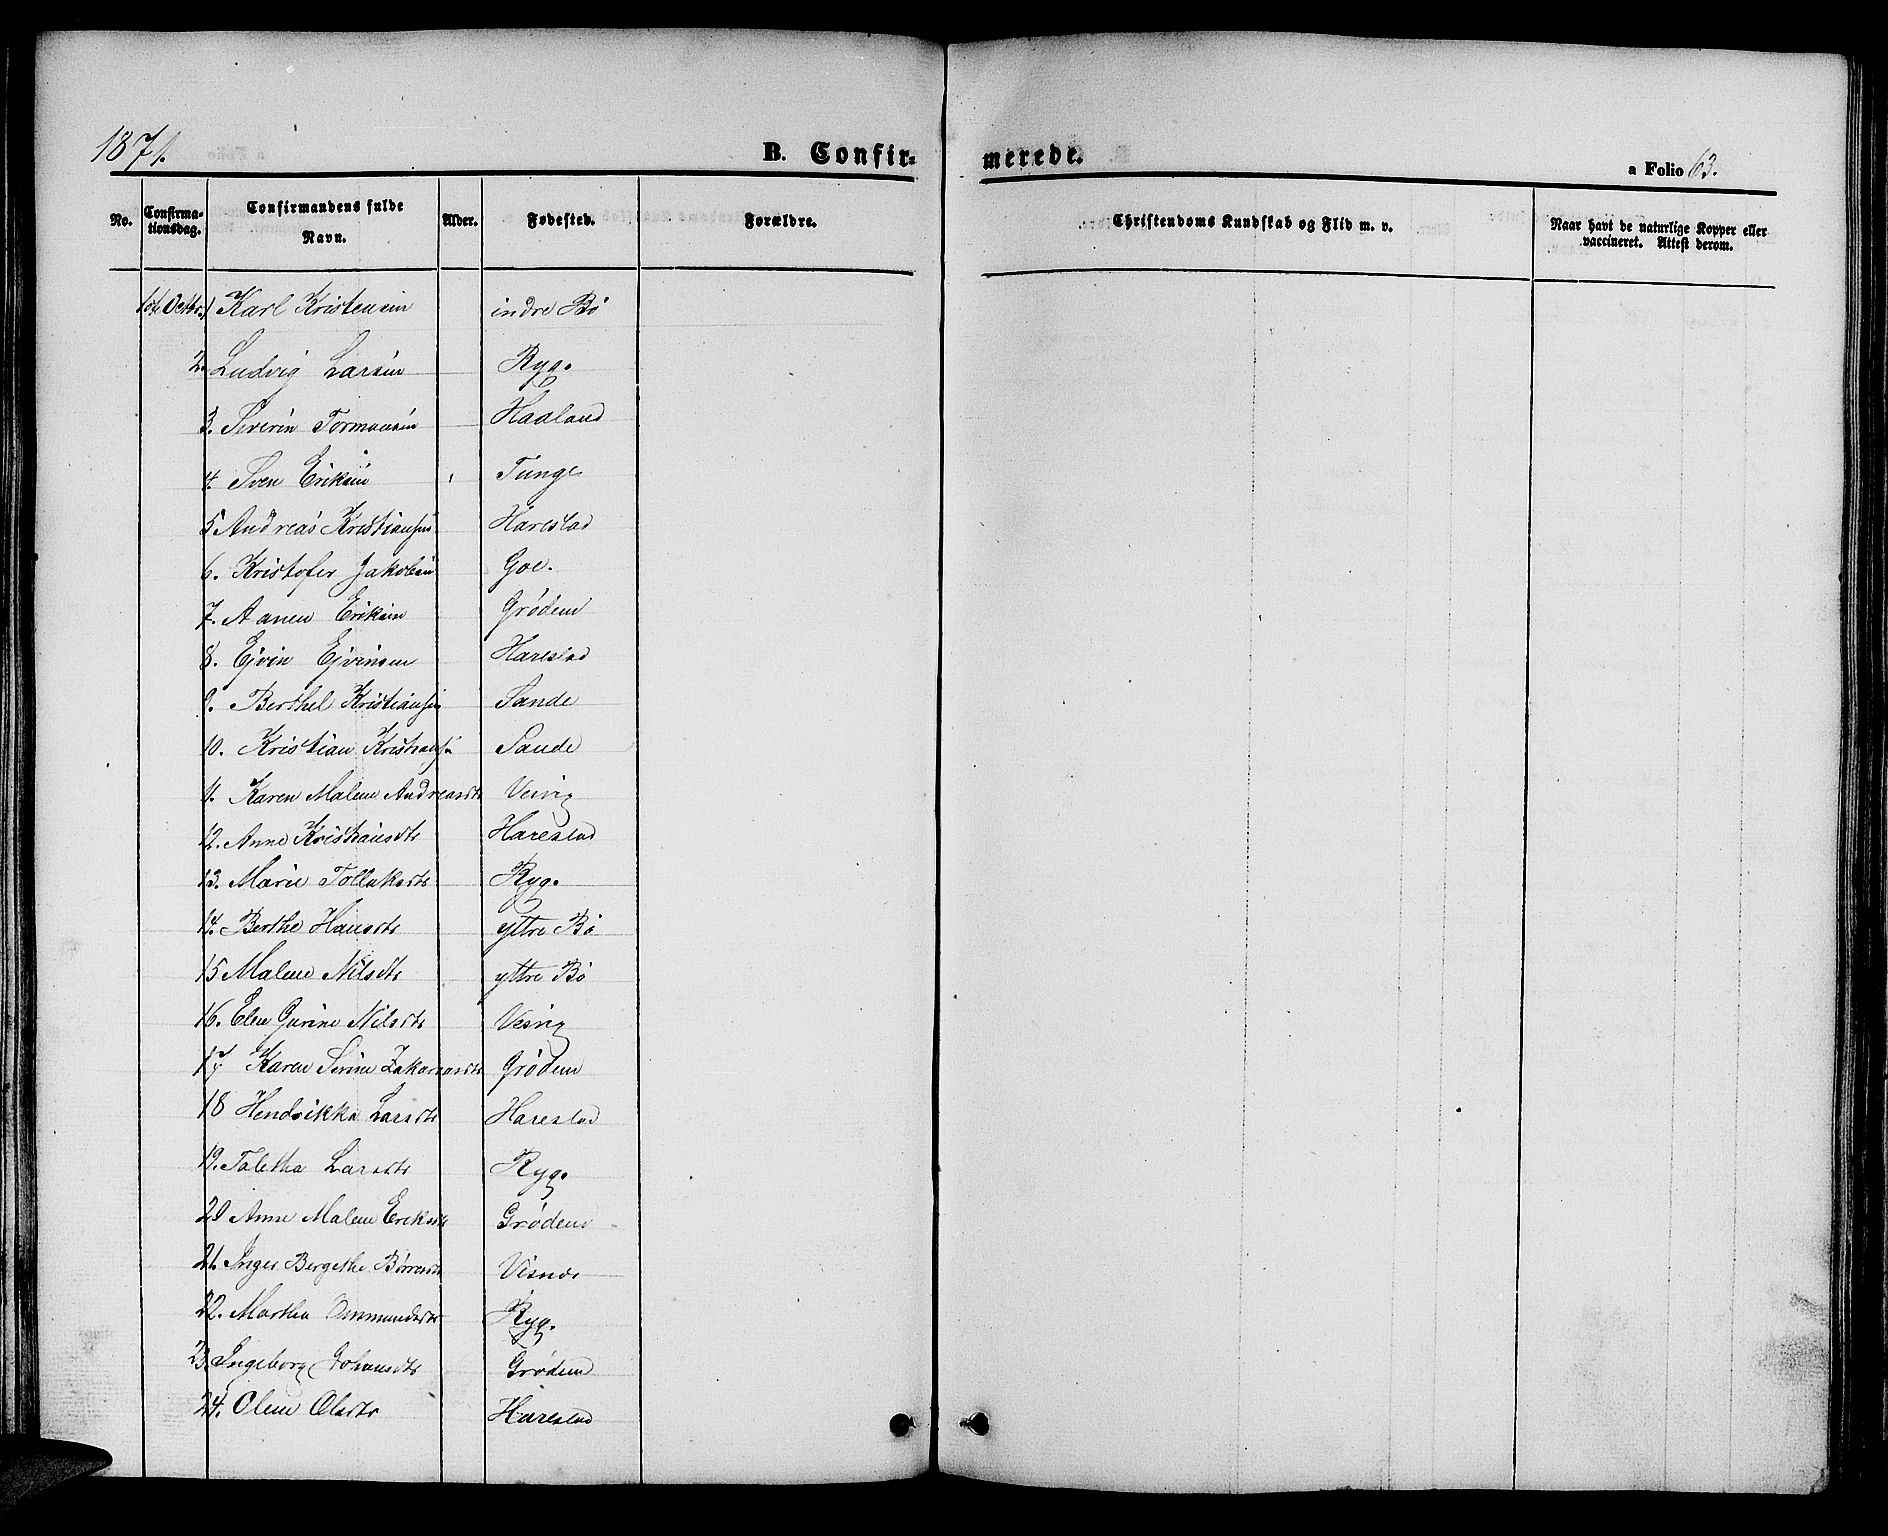 1871.
B. Confir-
merede.
a Folio 63.
No.
Confirma-
tionsdag.
Confirmandens fulde
Navn.
Alder.
Fødested.
Forældre.
Christendoms Kundskab og Flid m. v.
Naar havt de naturlige Kopper eller
vaccineret. Attest derom.
1ste Octbr. 1 Karl Kristensen indre Bø
2. Ludvig Larsen Ryg.
3. Severin Tormousen Haaland
4. Sven Eriksen Tunge
5 Andreas Kristiansen Harestad
6. Kristofer Jakobsen Goe.
7. Aanen Eriksen Grødem
8. Ejvin Ejvinsen Harestad
9. Berthel Kristiansen Sande
10. Kristian Kristiansen Sande
11. Karen Malene Andreasdtr Visvig
12. Anne Kristiansdtr Harestad
13. Marie Tollaksdtr Ryg.
14. Berthe Hansdtr yttre Bø
15 Malene Nilsdtr yttre Bø
16. Elen Gurine Nilsdtr Vesvig
17 Karen Serine Zakariasdtr Grødem
18 Hendrikka Larsdtr Harestad
19. Tabetha Larsdtr Ryg.
20 Anne Malene Eriksdtr Grødem
21. Inger Bergethe Børresdtr Visnes
22. Martha Ommundsdtr Ryg.
23. Ingeborg Johansdtr Grødem
24. Olene Olsdtr Harestad